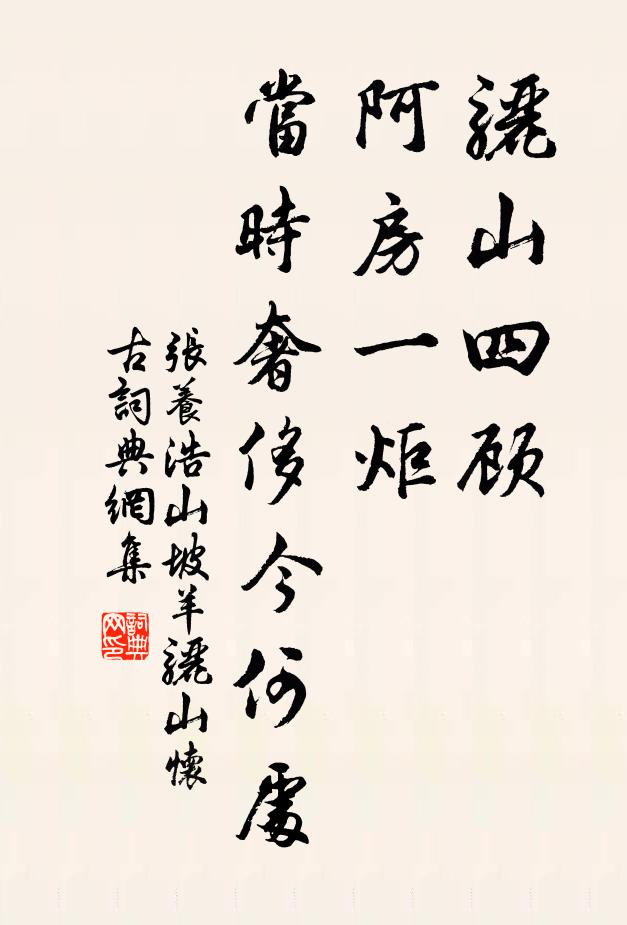 驪山四顾
阿房一炬
當時奢侈今何處
張養浩山坡羊驪山懷
古詞典網集
詞典
网印